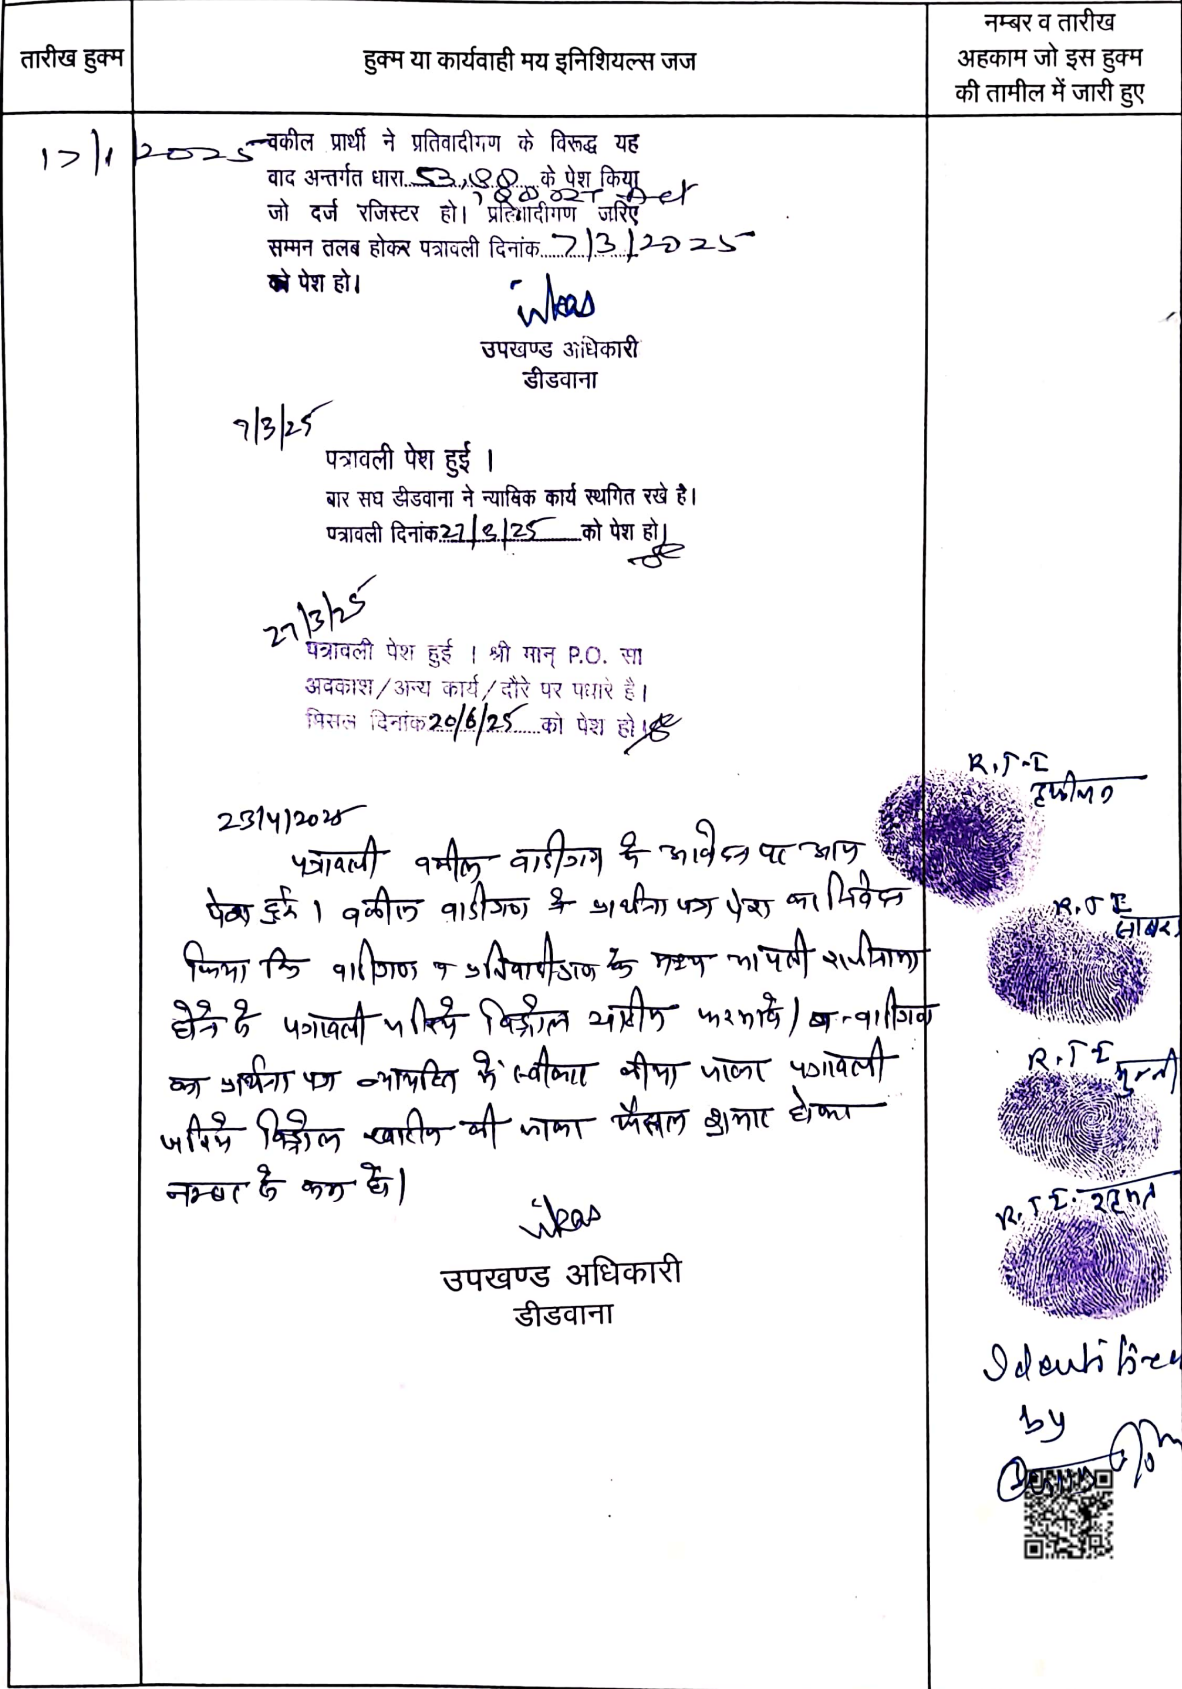 तारीख हुक्म
हुक्म या कार्यवाही मय इनिशियल्स जज
नम्बर व तारीख
अहकाम जो इस हुक्म
की तामील में जारी हुए
17/1/2025
वकील प्रार्थी ने प्रतिवादीगण के विरूद्ध यह
वाद अन्तर्गत धारा 53, 88 के पेश किया
188 Act
जो दर्ज रजिस्टर हो। प्रतिवादीगण जरिए
सम्मन तलब होकर पत्रावली दिनांक 7/3/2025
को पेश हो।
उपखण्ड अधिकारी
डीडवाना
7/3/25
पत्रावली पेश हुई ।
बार सघ डीडवाना ने न्यायिक कार्य स्थगित रखे है।
पत्रावली दिनांक 27/3/25 को पेश हो।
27/3/25
पत्रावली पेश हुई । श्री मान् P.O. सा
अवकाश/अन्य कार्य/दौरे पर पधारे है।
मिसल दिनांक 20/6/25 को पेश हो।
R.T.I
23/4/2025
पत्रावली वकील वादीगण के आवेदन पर आज
पेश हुई। वकील वादीगण ने प्रार्थना पत्र पेश कर निवेदन
R.T.I
किया कि वादीगण व प्रतिवादीगण के मध्य आपसी राजीनामा
होने से पत्रावली जरिये विड्रोल खारीज फरमावे। वादीगण
R.T.I मुन्नी
का प्रार्थना पत्र न्यायहित में स्वीकार कीया जाकर पत्रावली
जरिये विड्रोल खारीज की जाकर फैसल शुमार होकर
नम्बर से कम हो।
R.T.I. रहमत
उपखण्ड अधिकारी
डीडवाना
Identified
by